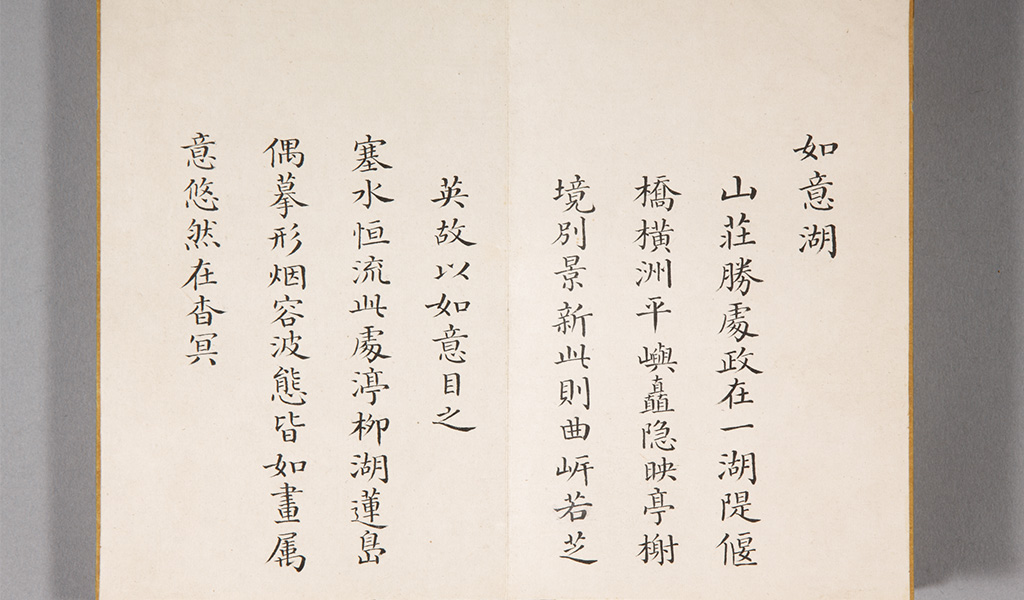 如意湖
山莊勝處政在一湖隄偃
橋橫洲平嶼矗隐映亭榭
境別景新此則曲岍若芝
英故以如意目之
塞水恒流此處渟柳湖蓮島
偶摹形烟容波態皆如畫属
意悠然在杳冥